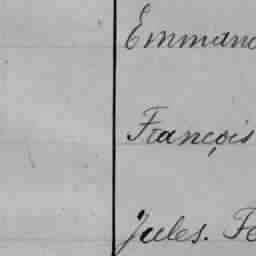 Emmano
François
Jules. Fe